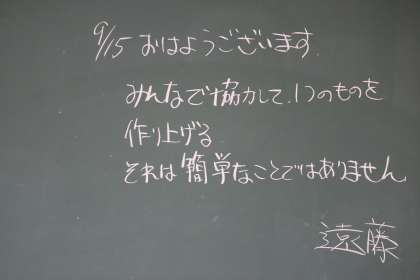 9/15 おはようございます.
みんなで協力して、1つのものを
作り上げる
それは簡単なことではありません
遠藤